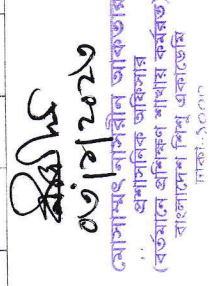 ০৫/৯/২০২৩
মোসাম্মৎ নাসরীন আকতার
প্রশাসনিক অফিসার
(বর্তমানে প্রশিক্ষণ শাখায় কর্মরত)
বাংলাদেশ শিশু একাডেমি
ঢাকা-১০০০